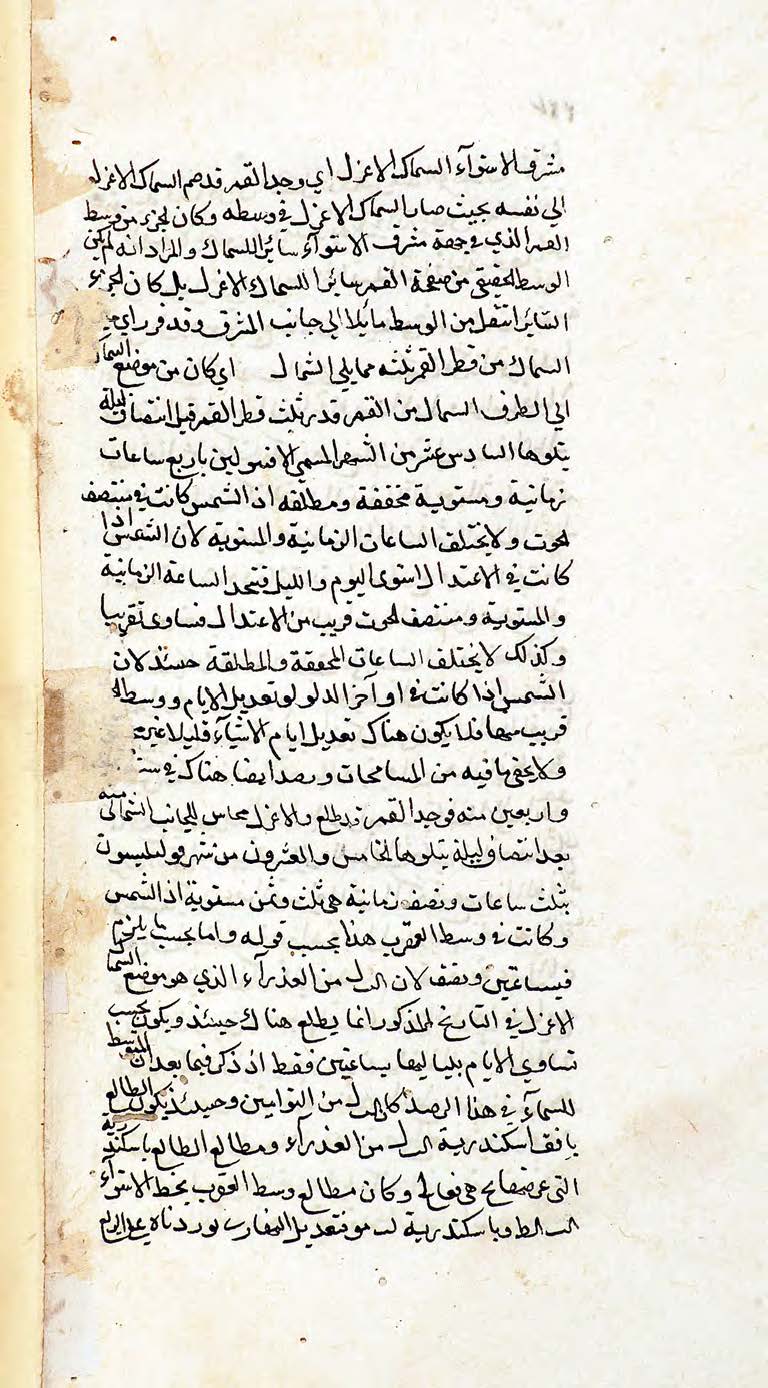 مشرق الاستوآء السماك الاعزل اي وجد القمر قد ضم السماك الاعزل
الي نفسه بحيث صار السماك الاعزل في وسطه وكان الجزء من وسط
القمر الذي في جهة مشرق الاستوآء ساترا للسماك والمراد انه لم يكن
الوسط الحقيقي من صفحة القمر ساترا للسماك الاعزل بل كان الجزء
الساتر انتقل من الوسط مائلا الي جانب المشرق وقد فر راي
السماك من قطر القمر ثلثه مما يلي الشمال اي كان من موضع السماك
الي الطرف الشمال من القمر قدر ثلث قطر القمر قبل انتصاف ليلة
يتلوها السادس عشر من الشهر المسمي باربع ساعات
زمانية ومستوية محققة ومطلقه اذ الشمس كانت في منتصف
الحوت ولا يختلف الساعات الزمانية والمستوية لان الشمس اذا
كانت في الاعتدال استوي اليوم والليل فتتحد الساعة الزمانية
والمستوية ومنتصف الحوت قريب من الاعتدال فتساوي تقريبا
وكذلك لا يختلف الساعات المحققة والمطلقة حينئذ لان
الشمس اذا كانت في اوآخر الدلو تعديل الايام ووسط
قريب منها فلا يكون هناك تعديل ايام الا شيآء قليلا غير
ولا يخفي ما فيه من المسامحات ورصد ايضا هناك في سنة
واربعين منه فوجد القمر قد طلع والاعزل مماس للجانب الشمالي منه
بعد انتصاف ليلة يتلوها الخامس والعشرون من شهر
بثلث ساعات ونصف زمانية هي ثلث وثمن مستوية اذ الشمس
وكانت في وسط العقرب هذا بحسب قوله واما بحسب ما يلزم
فبساعتين ونصف لان من العذرآء الذي هو موضع السماك
الاعزل في التاريخ المذكور انما يطلع هناك حينئذ ويكون بحسب
تساوي الايام بلياليها بساعتين فقط اذ ذكر فيما بعد ان المتوسط
للسمآء في هذا الرصد كان من التوامين وحينئذ يكون الطالع
بافق اسكندرية من العذرآء ومطالع الطالع باسكندرية
التي عرضها هي وكان مطالع وسط العقرب بخط الاستوآء
وباسكندرية تعديل النهار